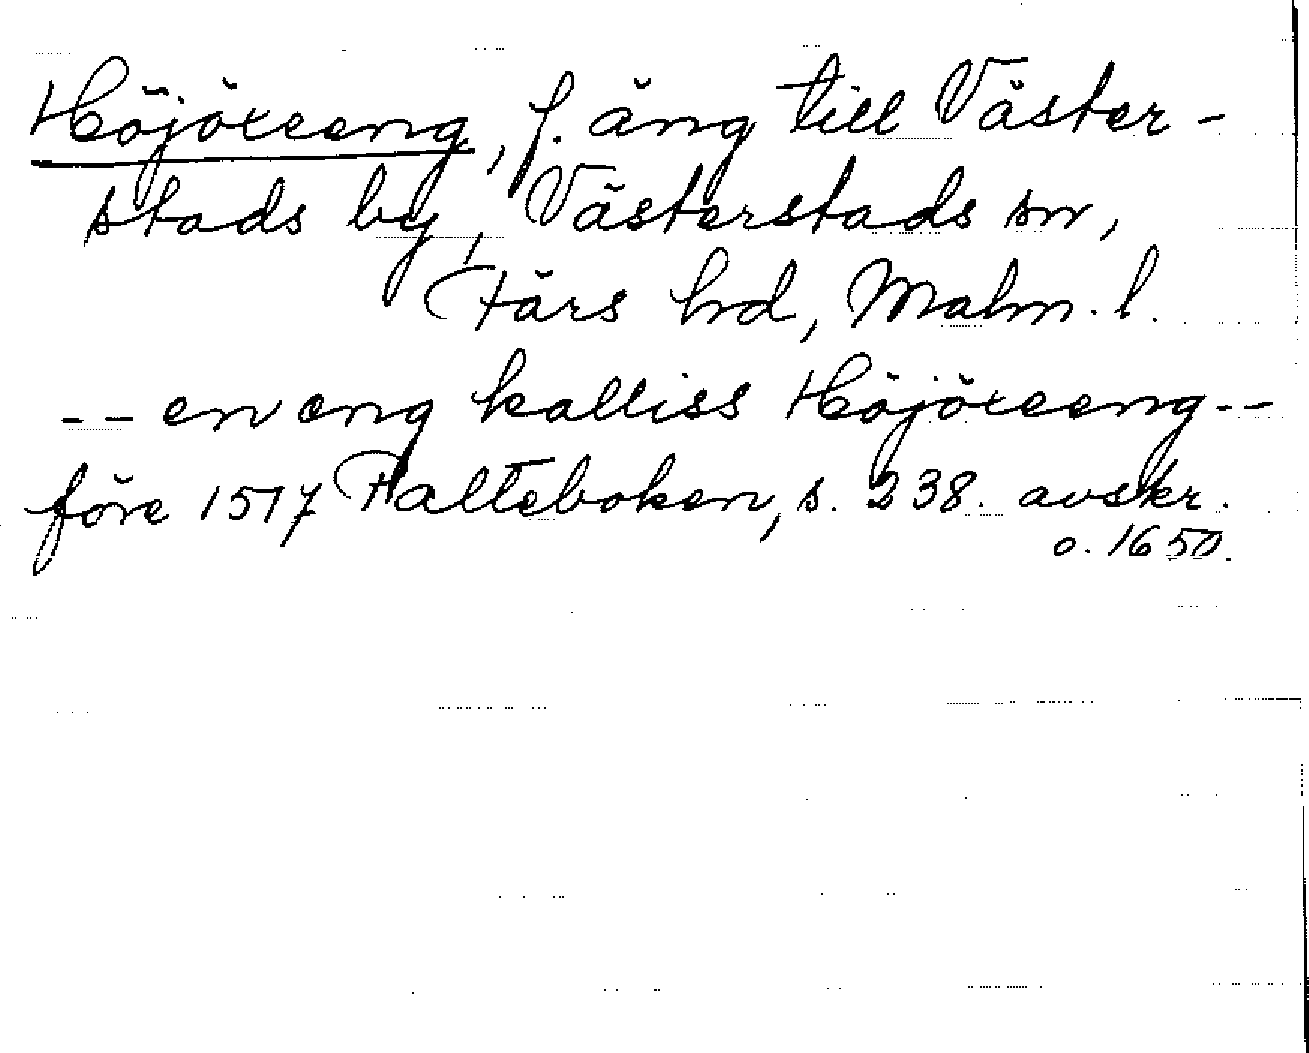 Höjöxeeng, f. äng till Väster-
stads by, Västerstads sn,
Färs hd, Malm. l.
-- en eng kalliss Höjöxeeng --
före 1517 Palteboken, s. 238. avskr.
o. 1650.